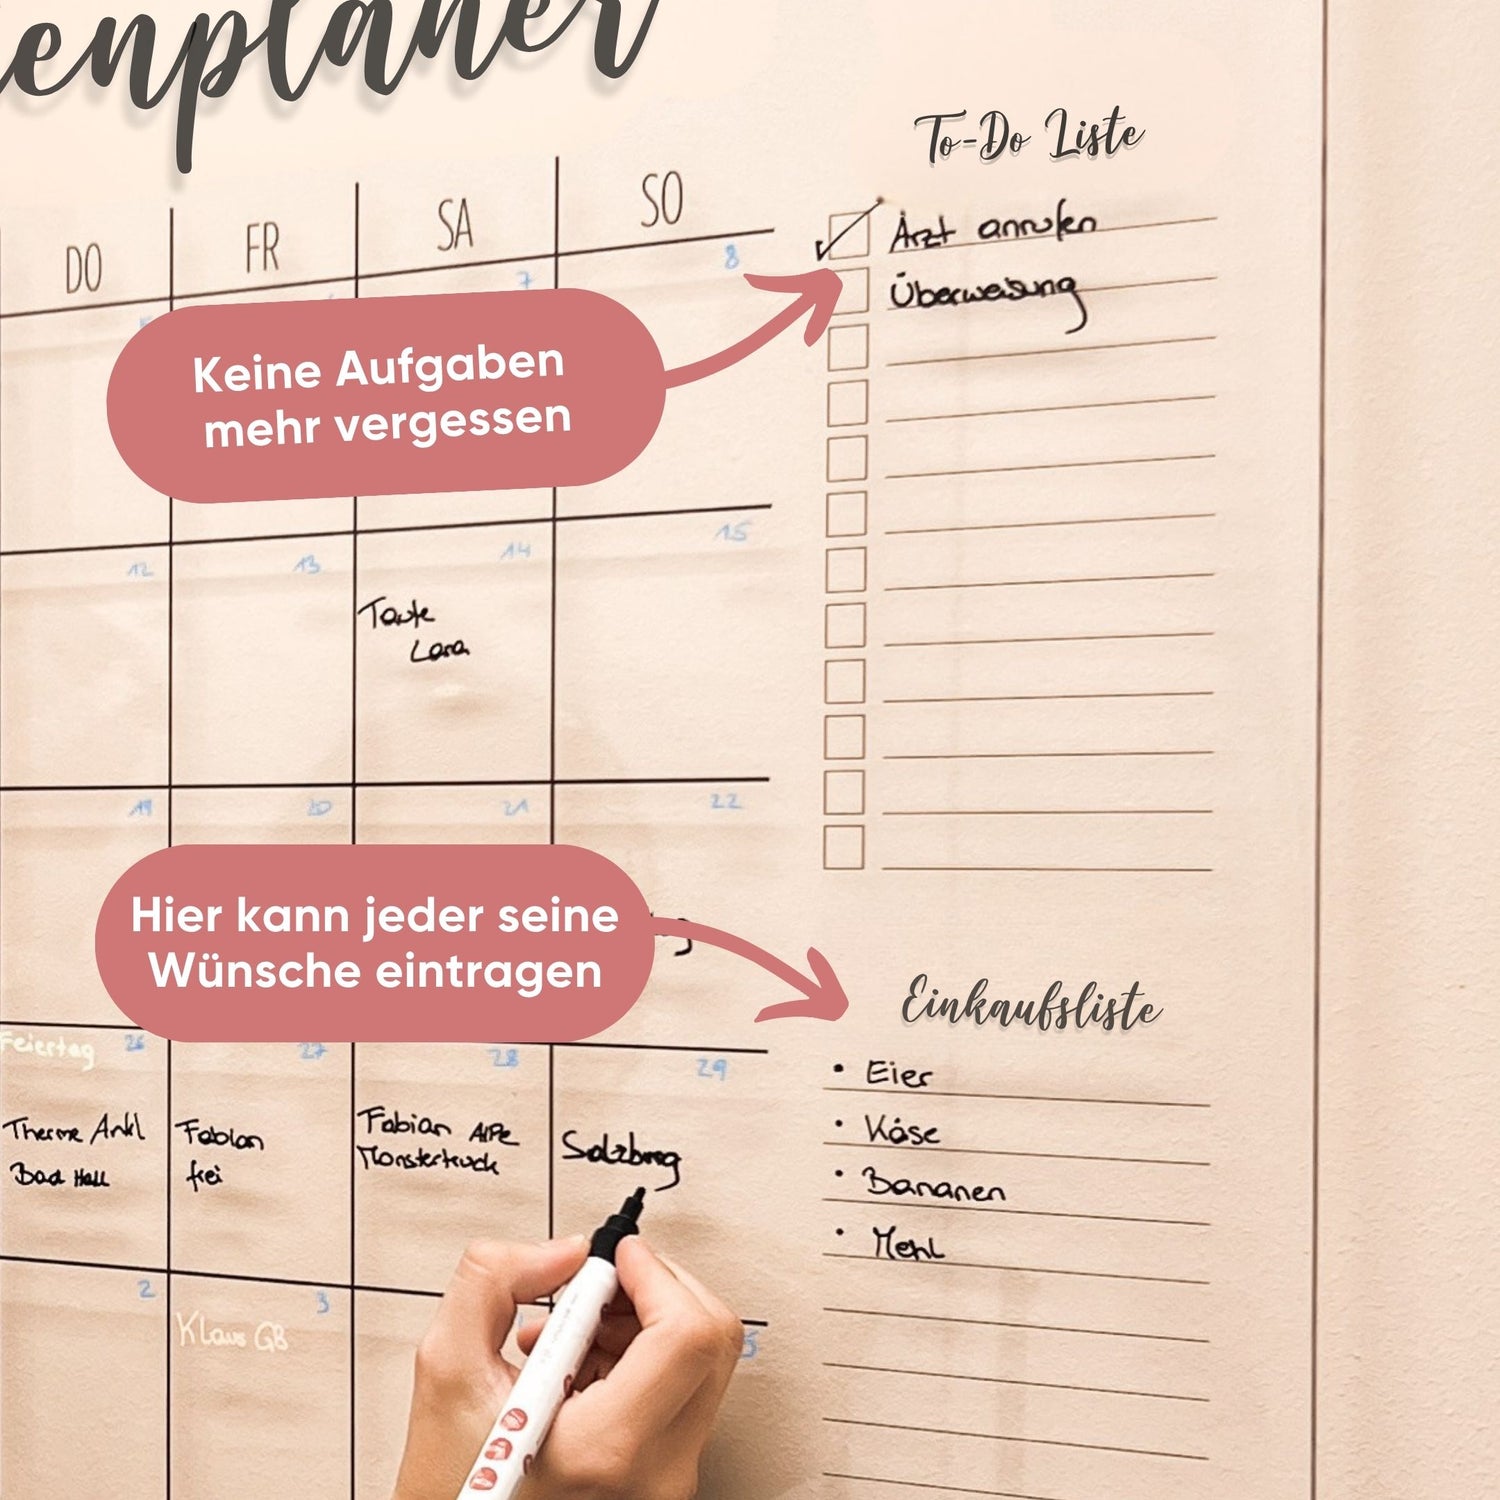 enplaner
To-Do Liste
DO FR SA SO
7 8
Arzt anrufen
Überweisung
Keine Aufgaben
mehr vergessen
12 13 14 15
Tante
Lara
19 20 21 22
Hier kann jeder seine
Wünsche eintragen
Einkaufsliste
Feiertag 26 27 28 29
Eier
Käse
Bananen
Mehl
Therme
Bad Hall
Fabian
frei
Fabian
Monstertruck
Salzburg
2 3 5
Klaus GB